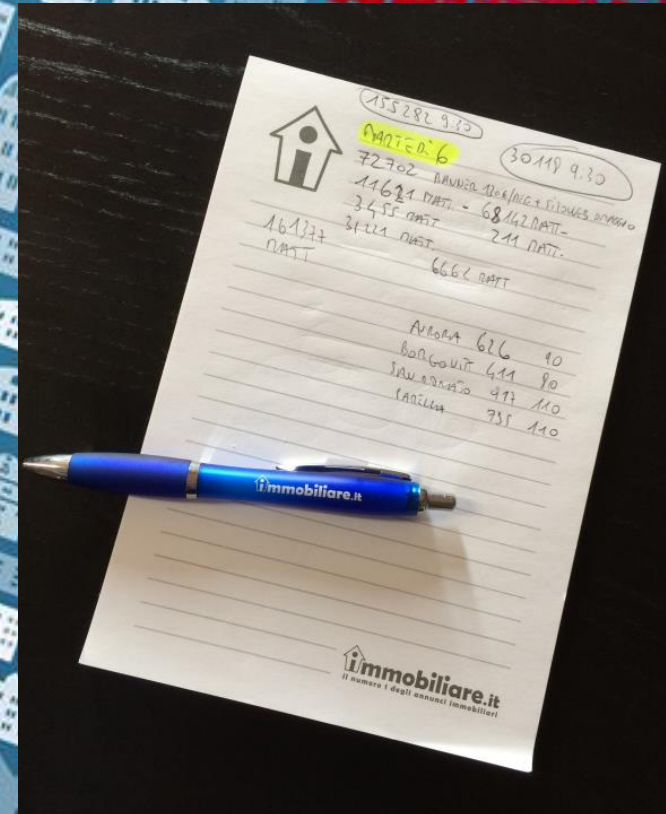 155282 9:30
MARTEDì 6
30118 9.30
72702 BANNER
11621 MATT. - 68142 MATT-
3455 MATT 211 MATT-
161377 31221 MATT.
MATT
6662 MATT
AURORA 626 90
BORGOVIT 411 80
SAN DONATO 917 110
735 110
immobiliare.it
immobiliare.it
il numero 1 degli annunci immobiliari